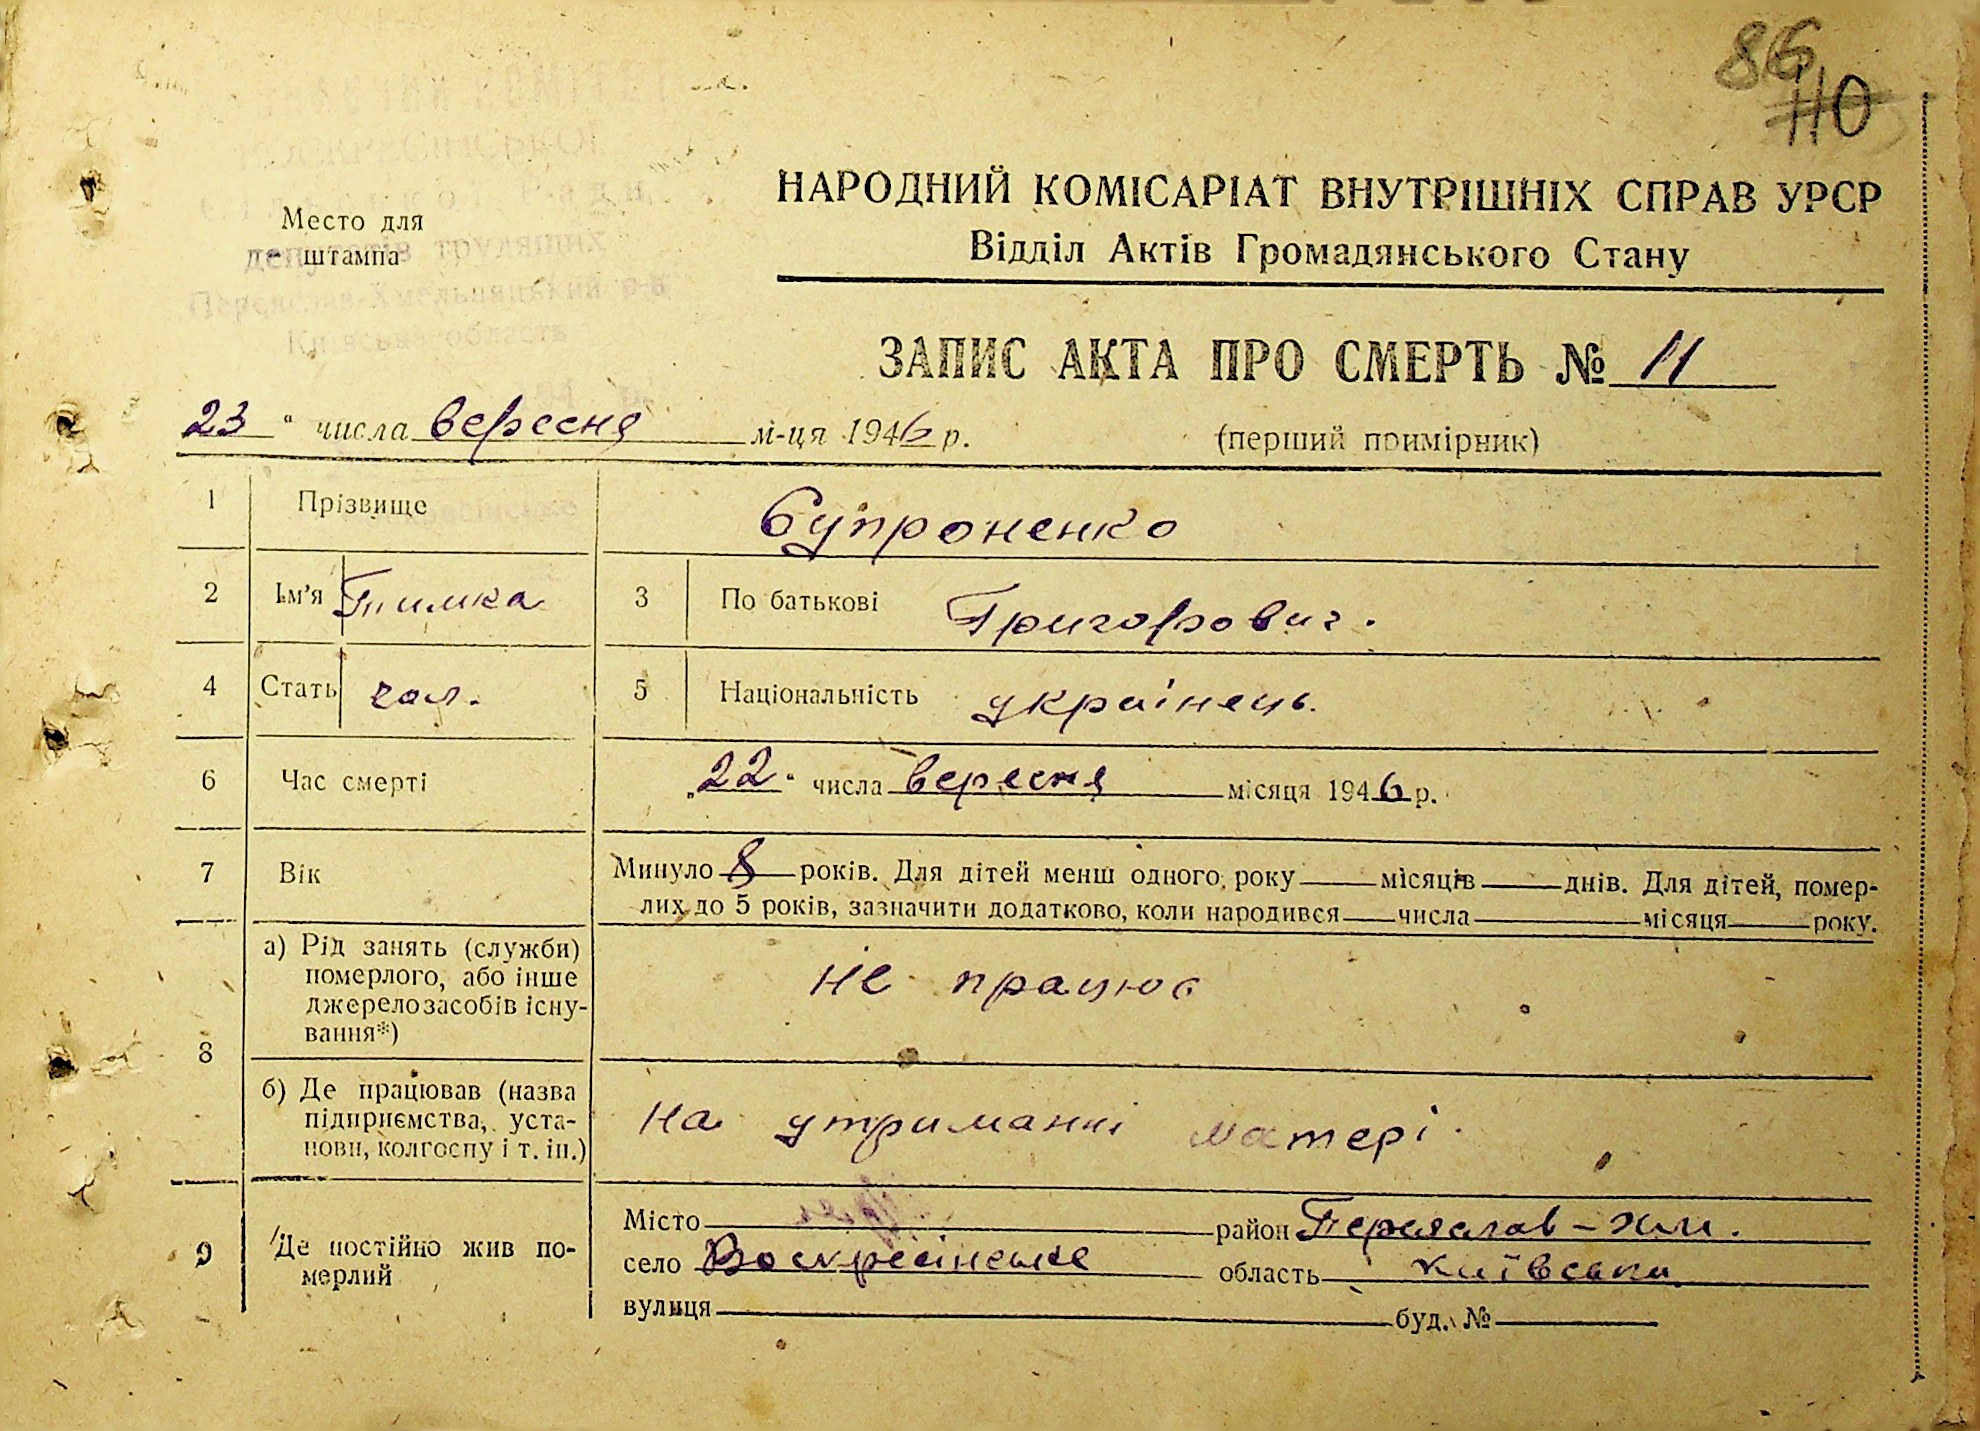 86
110
НАРОДНИЙ КОМІСАРІАТ ВНУТРІШНІХ СПРАВ УРСР
Відділ Актів Громадянського Стану
Место для
штампа
депутатів трудящих
Переяслав-Хмельницький р-н
Київська область
ЗАПИС АКТА ПРО СМЕРТЬ № 11
23 " числа вересня м-ця 1946 р. (перший примірник)
1 Прізвище Супроненко
2 Ім'я Тимка 3 По батькові Григорович.
4 Стать чол. 5 Національність українець.
6 Час смерті „22" числа вересня місяця 1946 р.
7 Вік Минуло 8 років. Для дітей менш одного року місяців днів. Для дітей, помер-
лих до 5 років, зазначити додатково, коли народився числа місяця року.
8 а) Рід занять (служби)
померлого, або інше
джерело засобів існу-
вання*)
не працює
б) Де працював (назва
підприємства, уста-
нови, колгоспу і т. ін.)
на утриманні матері.
9 Де постійно жив по-
мерлий
Місто район Переяслав-Хм.
село Воскресінське область Київська
вулиця буд. №